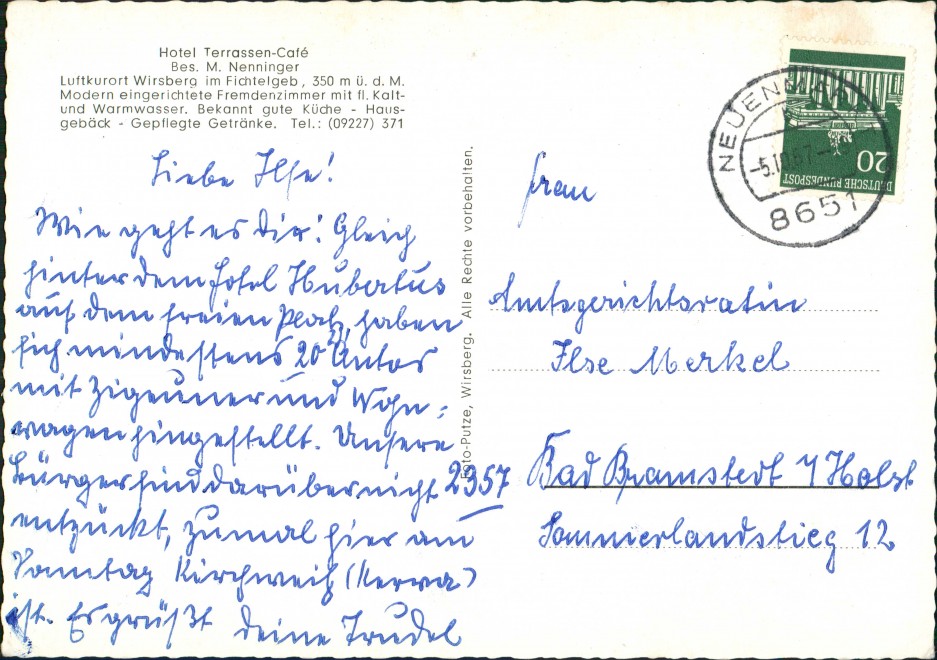 Hotel Terrassen-Café
Bes. M. Nenninger
Luftkurort Wirsberg im Fichtelgeb, 350 m ü. d. M.
Modern eingerichtete Fremdenzimmer mit fl. Kalt-
und Warmwasser. Bekannt gute Küche - Haus-
gebäck - Gepflegte Getränke. Tel.: (09227) 371
Liebe Ilse!
Wie geht es dir! Gleich
hinter dem Hotel Hubertus
auf dem freien Platz, haben
sich mindestens 20 Autos
mit Zigeuner und Wohn-
wagen hingestellt. Unsere
Bürger sind darüber nicht
entzückt, zumal hier am
Samstag Kirchweih (Kerwa)
ist. Es grüßt deine Trudel
Foto-Putze, Wirsberg. Alle Rechte vorbehalten.
NEUENMARKT
-5.10.67-
8651
20
DEUTSCHE BUNDESPOST
Frau
Amtsgerichtsrätin
Ilse Merkel
2357 Bad Bramstedt / Holst
Sommerlandstieg 12